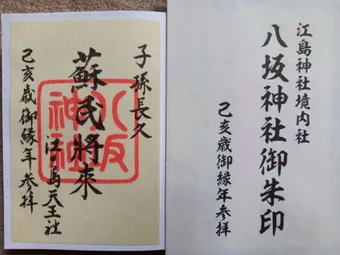 子孫長久
蘇民將来
江ノ島天王社
己亥歳御縁年参拝
八坂神社
江島神社境内社
八坂神社御朱印
己亥歳御縁年参拝